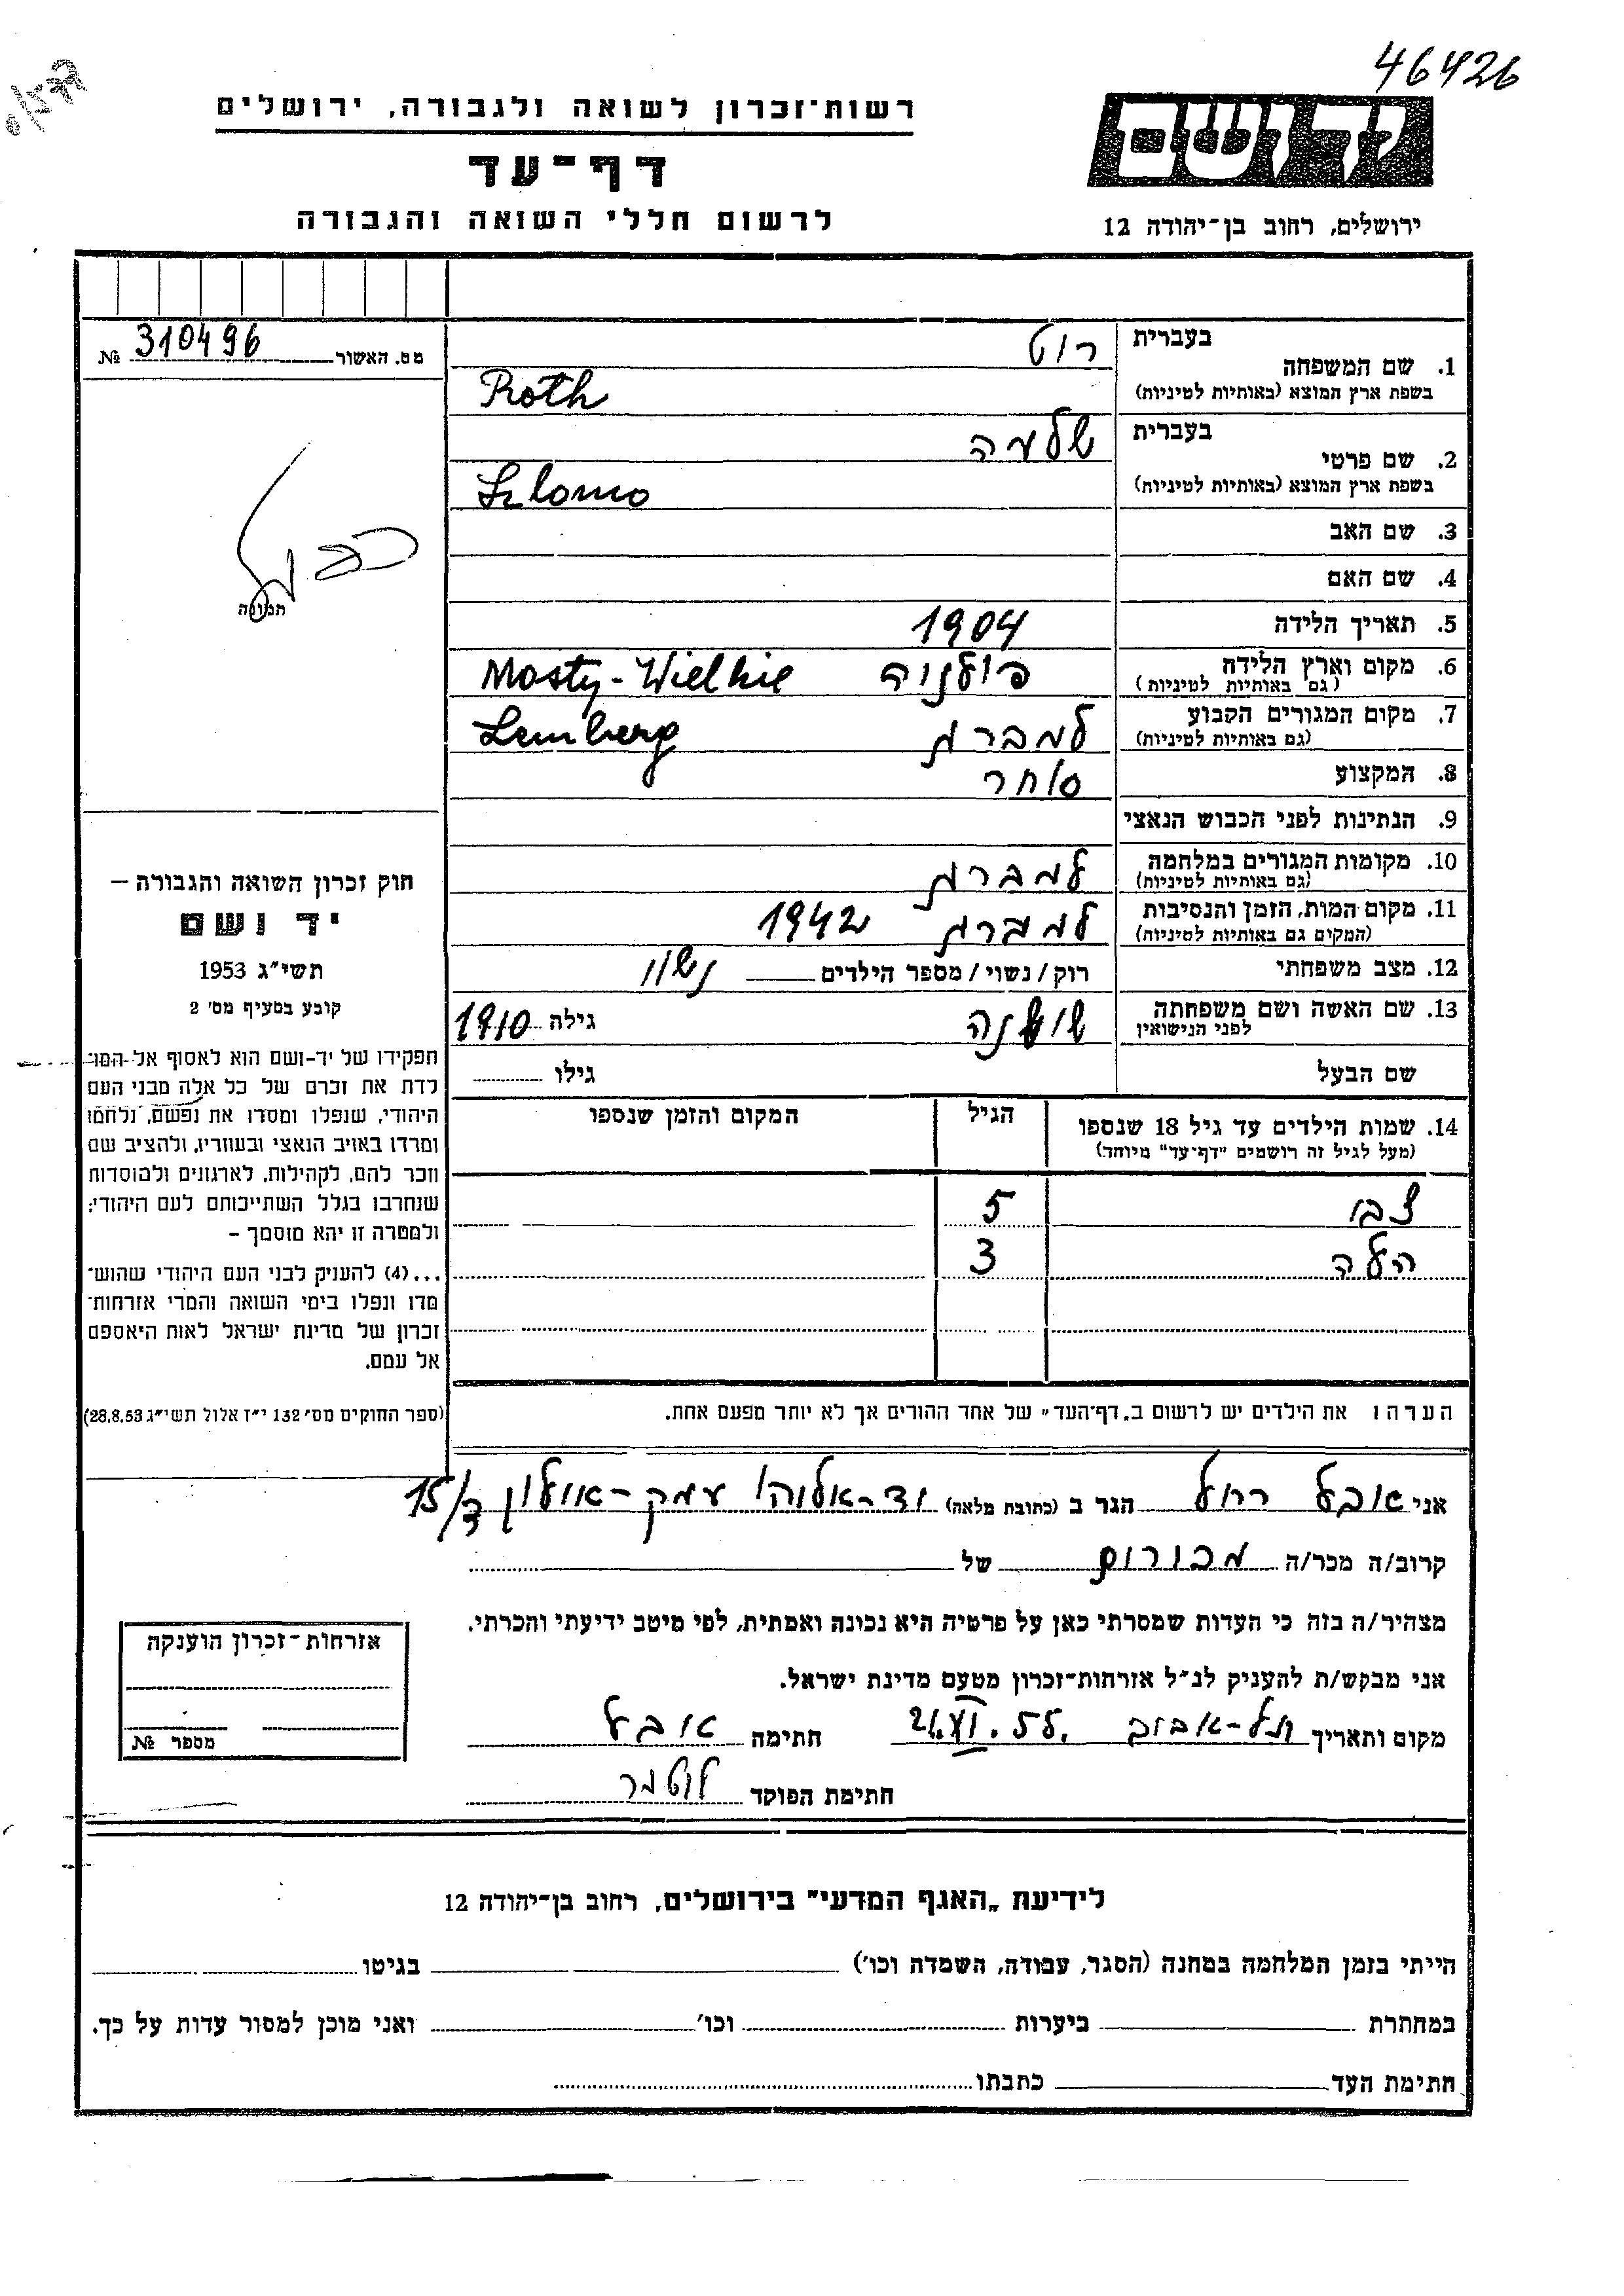 46426
רשות־זכרון לשואה ולגבורה, ירושלים
דף־עד
לרשום חללי השואה והגבורה
יד ושם
ירושלים, רחוב בן־יהודה 12
מס. האשור 310496 №
תמונה
כפול
בעברית
רוט
1. שם המשפחה
בשפת ארץ המוצא (באותיות לטיניות)
Roth
בעברית
שלמה
2. שם פרטי
בשפת ארץ המוצא (באותיות לטיניות)
Szlomo
3. שם האב
4. שם האם
5. תאריך הלידה 1904
6. מקום וארץ הלידה פולניה Mosty-Wielkie
(גם באותיות לטיניות)
7. מקום המגורים הקבוע למברג Lemberg
(גם באותיות לטיניות)
8. המקצוע סוחר
9. הנתינות לפני הכבוש הנאצי
10. מקומות המגורים במלחמה למברג
(גם באותיות לטיניות)
11. מקום המות, הזמן והנסיבות למברג 1942
(המקום גם באותיות לטיניות)
12. מצב משפחתי רוק/נשוי/מספר הילדים נשוי
13. שם האשה ושם משפחתה שושנה גילה 1910
לפני הנישואין
שם הבעל גילו
14. שמות הילדים עד גיל 18 שנספו הגיל המקום והזמן שנספו
(מעל לגיל זה רושמים "דף־עד" מיוחד)
צבי 5
הלה 3
הערה: את הילדים יש לרשום ב„דף־העד" של אחד ההורים אך לא יותר מפעם אחת.
חוק זכרון השואה והגבורה –
יד ושם
תשי"ג 1953
קובע בסעיף מס' 2
תפקידו של יד־ושם הוא לאסוף אל המו־
לדת את זכרם של כל אלה מבני העם
היהודי, שנפלו ומסרו את נפשם, נלחמו
ומרדו באויב הנאצי ובעוזריו, ולהציב שם
וזכר להם, לקהילות, לארגונים ולמוסדות
שנחרבו בגלל השתייכותם לעם היהודי;
ולמטרה זו יהא מוסמך –
...(4) להעניק לבני העם היהודי שהוש־
מדו ונפלו בימי השואה והמרי אזרחות־
זכרון של מדינת ישראל לאות היאספם
אל עמם.
(ספר החוקים מס' 132 י"ז אלול תשי"ג 28.8.53)
אני אובל רחל הגר ב (כתובת מלאה) יד-אליהו עמק-איילון 15/ד
קרוב/ה מכר/ה מכורות של
מצהיר/ה בזה כי העדות שמסרתי כאן על פרטיה היא נכונה ואמתית, לפי מיטב ידיעתי והכרתי.
אני מבקש/ת להעניק לנ"ל אזרחות־זכרון מטעם מדינת ישראל.
מקום ותאריך תל-אביב חתימה אובל
חתימת הפוקד
אזרחות־זכרון הוענקה
מספר №
לידיעת „האגף המדעי" בירושלים, רחוב בן־יהודה 12
הייתי בזמן המלחמה במחנה (הסגר, עבודה, השמדה וכו') בגיטו
במחתרת ביערות וכו' ואני מוכן למסור עדות על כך.
חתימת העד כתבתו